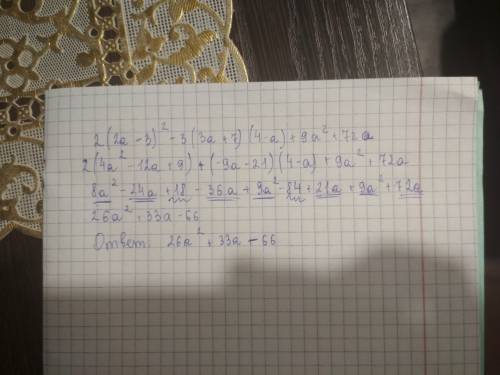 2(2a-3)²-3(3a+7)(4-a)+9a²+72a
2(4a²-12a+9)+(-9a-21)(4-a)+9a²+72a
8a²-24a+18-36a+9a²-84+21a+9a²+72a
26a²+33a-66
Ответ: 26a²+33a-66